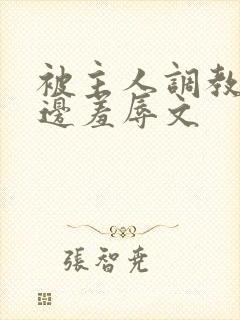 被主人調教
邊羞辱文
張智堯